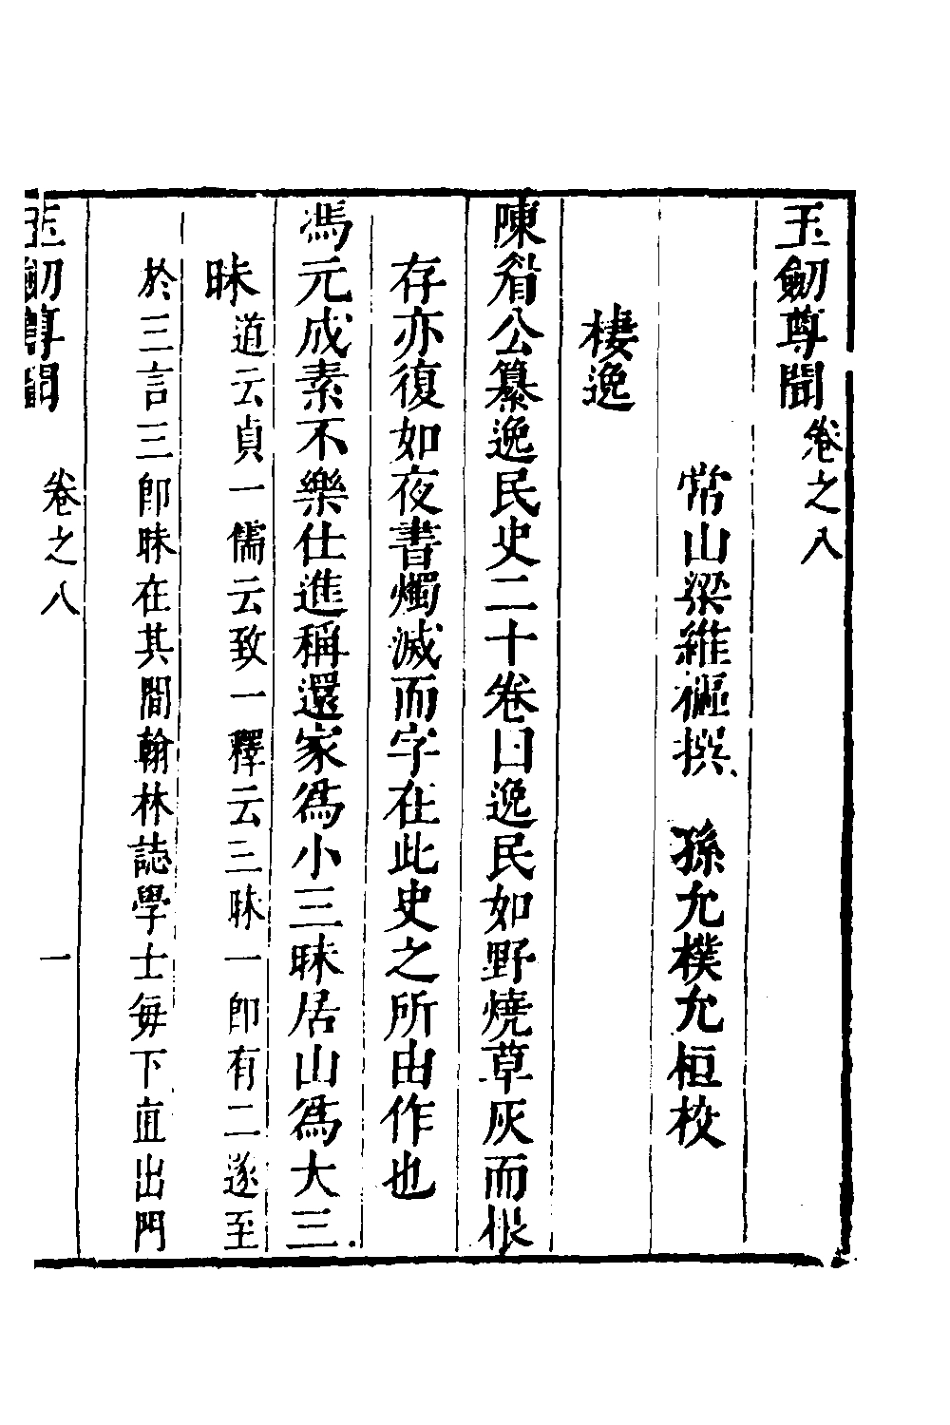 玉劒尊聞卷之八
常山梁維樞撰 孫允樸允桓校
棲逸
陳眉公纂逸民史二十卷曰逸民如野燒草灰而根
存亦復如夜書燭滅而字在此史之所由作也
馮元成素不樂仕進稱還家為小三昧居山為大三
昧道云貞一儒云致一釋云三昧一卽有二遂至
於三言三卽昧在其間翰林誌學士每下直出門
玉劒尊聞 卷之八 一